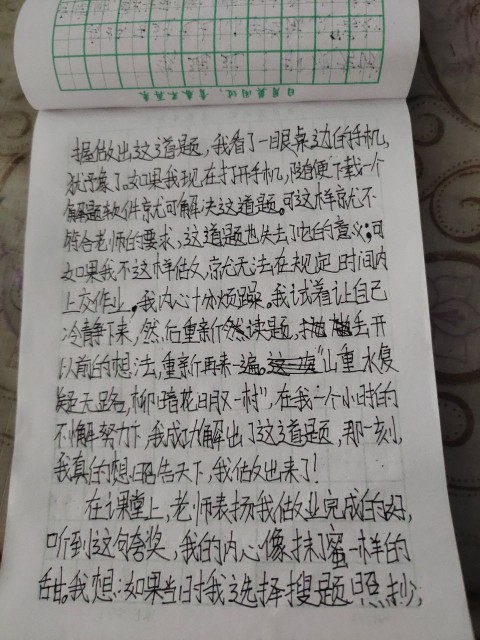 日月莫闲过，青春不再来
握做出这道题，我看了一眼桌边的手机，
犹予象了。如果我现在打开手机，随便下载一个
解题软件就可解决这道题。可这样就不
符合老师的要求，这道题也失去了它的意义；可
如果我不这样做，就无法在规定时间内
上交作业。我内心十分烦躁。我试着让自己
冷静下来，然后重新读题，丢开
以前的想法，重新再来一遍。“山重水复
疑无路，柳暗花明又一村”，在我一个小时的
不懈努力下，我成功解出了这道题，那一刻，
我真的想昭告天下，我做出来了！
在课堂上，老师表扬我做业完成的好，
听到这句夸奖，我的内心像抹了蜜一样的
甜。我想：如果当时我选择搜题照抄，